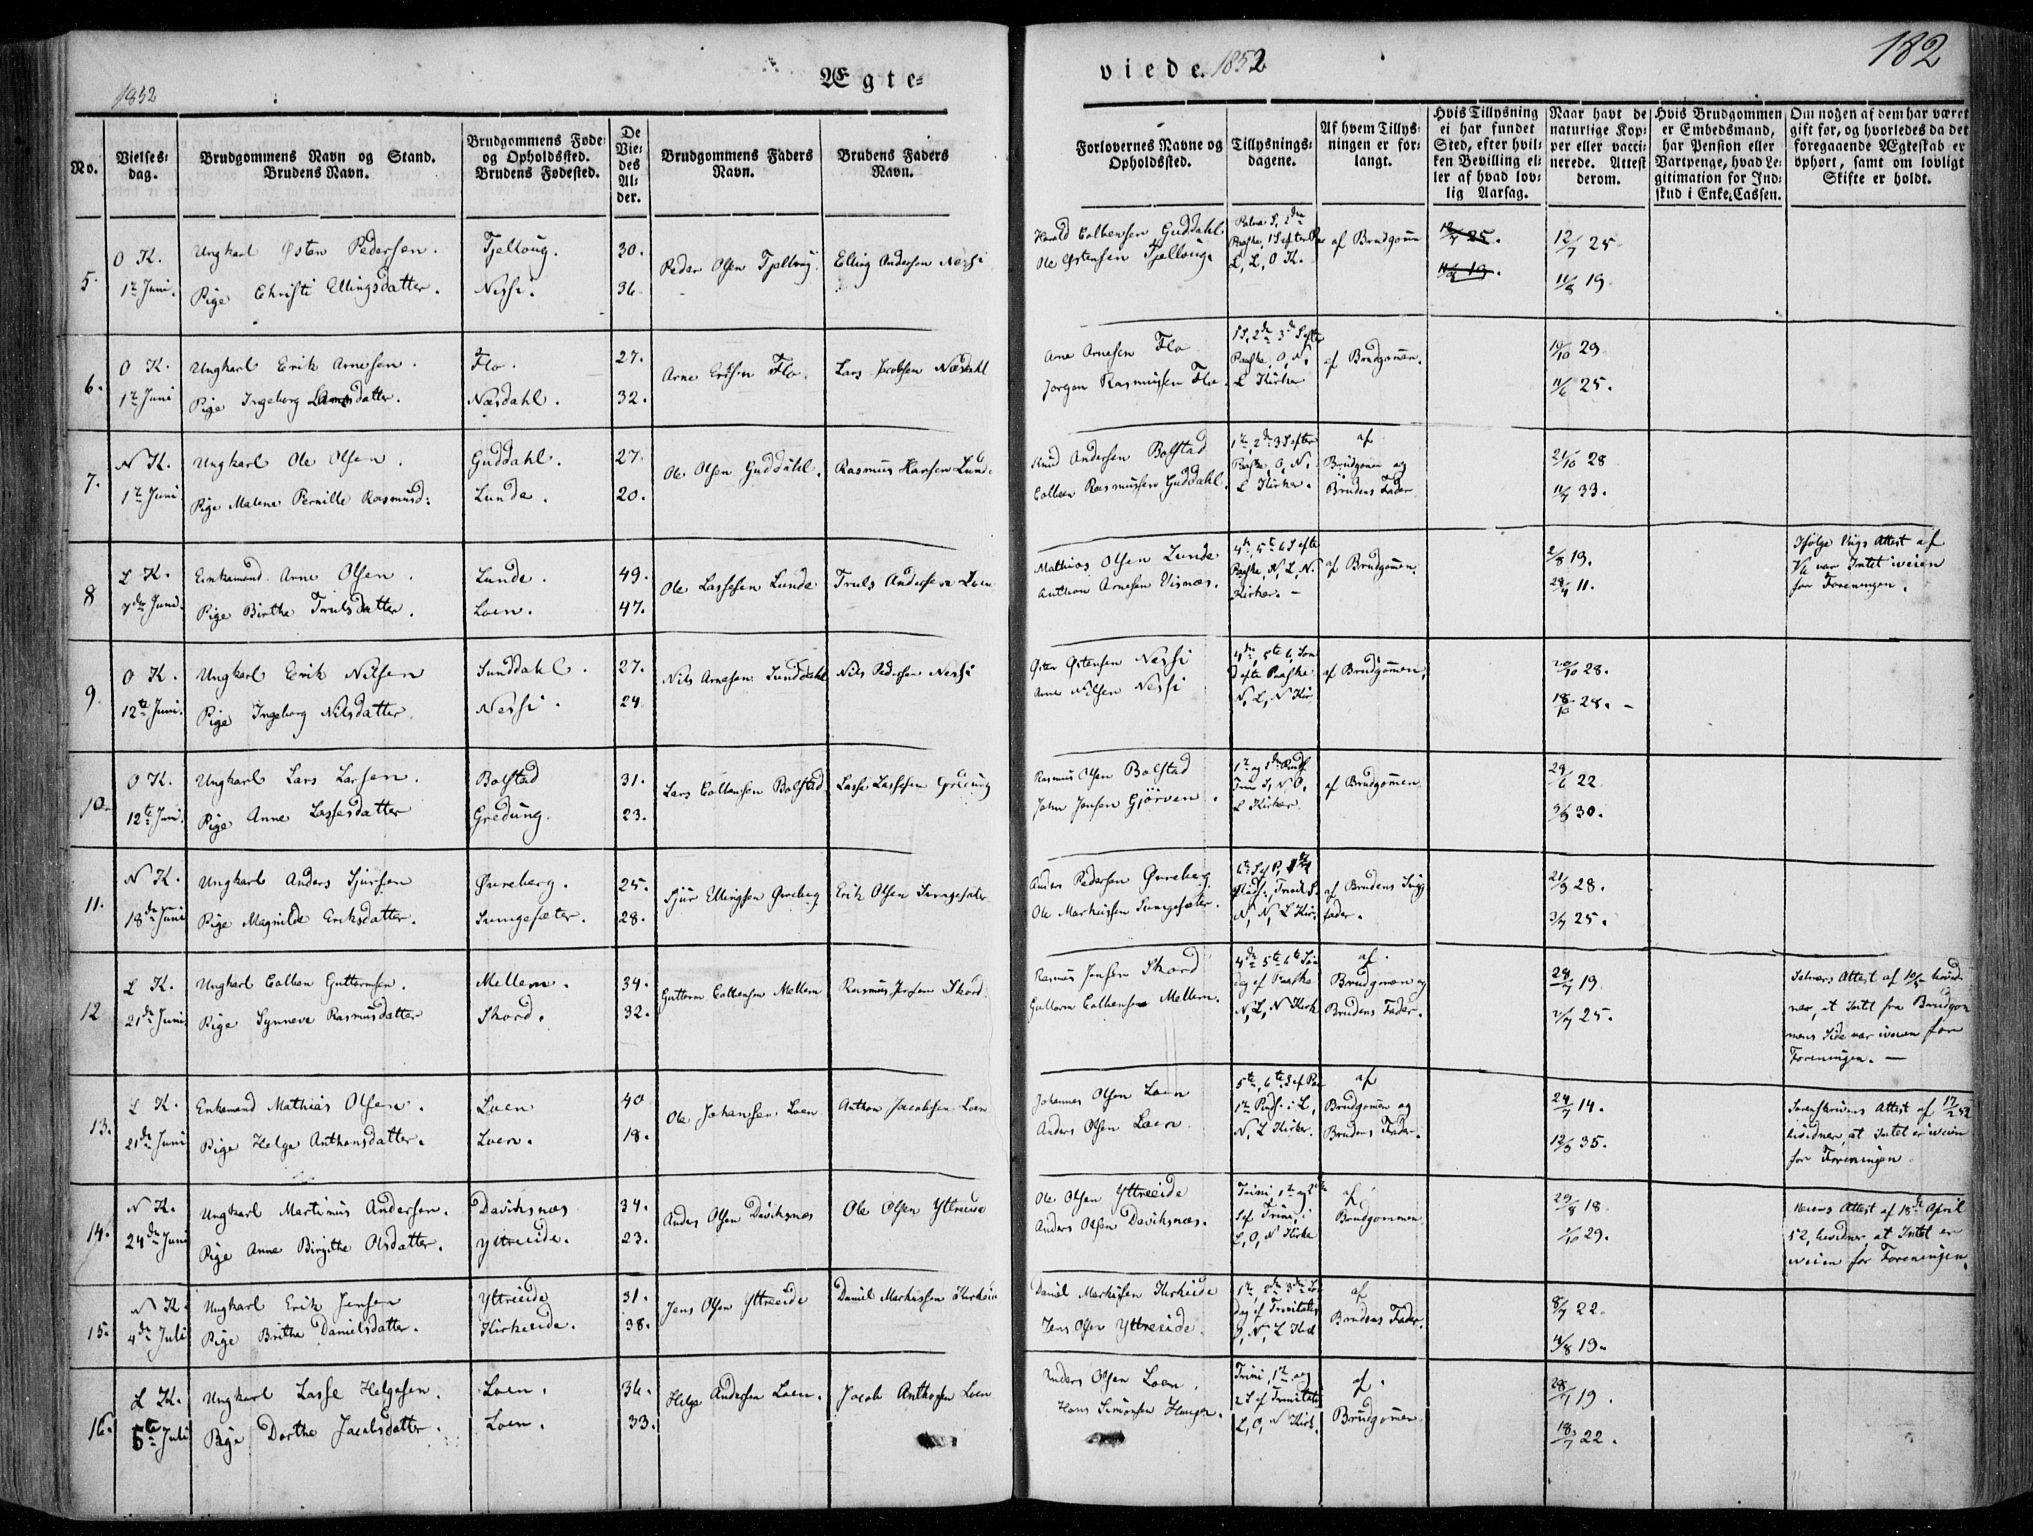 1852
Ægte-
viede. 1852
182
No.
Vielses-
dag.
Brudgommens Navn og Stand.
Brudens Navn.
Brudgommens Føde-
og Opholdssted.
Brudens Fødested.
De
Vie-
des
Al-
der.
Brudgommens Faders
Navn.
Brudens Faders
Navn.
Forlovernes Navne og
Opholdssted.
Tillysnings-
dagene.
Af hvem Tillys-
ningen er for-
langt.
Hvis Tillysning
ei har fundet
Sted, efter hvil-
ken Bevilling el-
ler af hvad lov-
lig Aarsag.
Naar havt de
naturlige Kop-
per eller vacci-
nerede. Attest
derom.
Hvis Brudgommen
er Embedsmand,
har Pension eller
Vartpenge, hvad Le-
gitimation for Ind-
skud i Enke-Cassen.
Om nogen af dem har været
gift før, og hvorledes da det
foregaaende Ægteskab er
ophørt, samt om lovligt
Skifte er holdt.
5.
O K.
1te Juni.
Ungkarl Østen Pedersen.
Pige Christi Ellingsdatter.
Tjelloug.
Nessi.
30.
36.
Peder Olsen Tjelloug.
Elling Andersen Nessi
Harald Colbensen Guddahl.
Ole Østensen Tjelloug.
L, L, O K.
af Brudgommen
12/7 25.
11/8 19.
12/7 25
11/8 19
6.
O K.
1te Juni
Ungkarl Erik Arnesen.
Pige Ingeborg Larsdatter.
Flo.
Næsdahl.
27.
32.
Arne Erksen Flo.
Lars Jacobsen Næsdahl
Arne Arnesen Flo
Jørgen Rasmussen Flo.
1 S, 2de 3de S efter
Paaske, O, N,
L Kirker
af Brudgommen.
19/10 29
11/6 25.
7.
N K.
1te Juni
Ungkarl Ole Olsen.
Pige Malene Pernille Rasmusd:
Guddahl.
Lunde.
27.
20.
Ole Olsen Guddahl.
Rasmus Hansen Lunde
Knud Andersen Bolstad
Colben Rasmussen Guddahl.
1te, 2de 3 S efter
Paaske, O, N,
L Kirker.
af
Brudgommen og
Brudens Fader
21/10 28
11/7 33.
8
L K.
7de Juni.
Enkemand Arne Olsen.
Pige Birthe Trulsdatter.
Lunde.
Loen.
49.
47.
Ole Lassesen Lunde
Truls Andersen Loen
Mathias Olsen Lunde
Anthon Arnesen Visnæs.
4de, 5te 6 S efter
Paaske, N, L, N.
Kirker. –
af Brudgommen.
2/8 19.
29/4 11.
Ifølge Vigs Attest af
var Intet iveien
for Foreningen.
9.
O K.
12te Juni.
Ungkarl Erik Nilsen
Pige Ingeborg Nilsdatter.
Sunddahl.
Nessi.
27.
24
Nils Arnesen Sunddahl
Nils Pedersen Nessi
Østen Østensen Nessi
Arne Nilsen Nessi
4de, 5te 6, Søn
d efter Paaske
N, L, N Kir
af Brudgommen,
20/10 28.
18/10 28. –
10.
O K.
12te Juni.
Ungkarl Lars Larsen.
Pige Anne Lassesdatter
Bolstad
Gredung.
31.
23.
Lars Colbensen Bolstad
Lasse Lassesen Gredung
Rasmus Olsen Bolstad
John Jonsen Gjörven.
L Kirker.
af Brudgommen
29/6 22
9/9 30.
11.
N K.
18de Juni
Ungkarl Anders Sjursen
Pige Magnilde Eriksdatter.
Øvreberg.
Sungesæter.
25.
28.
Sjur Ellingsen Øvreberg
Erik Olsen Sungesæter
Anders Pedersen Øvreberg
Ole Markussen Sungesæter.
N, N, L Kir.
af Brudens Svig
fader.
21/9 28.
3/7 25.
12
L K.
21de Juni
Ungkarl Colben Guttormsen.
Pige Synneve Rasmusdatter
Mellem.
Skord.
34.
32.
Guttorm Colbensen Mellem
Rasmus Jensen Skord.
Rasmus Jensen Skord
Guttorm Colbensen Mellem.
4de 5te 6te Søn
dag ef Paaske
N, L, N Kirk
af.
Brudgommen og
Brudens Fader.
28/7 19.
2/7 25.
Attest af 10/5 bevid
ner, at Intet fra Brudgom
mens Side var iveien for
Foreningen. –
13.
L K.
21de Juni
Enkemand Mathias Olsen.
Pige Helge Anthonsdatter.
Loen
Loen.
40
18.
Ole Johansen Loen
Anthon Jacobsen Loen
Johannes Olsen Loen
Anders Olsen Loen.
5te, 6te S ef Paa
1te Pinds: i L,
N, L Kirker.
af
Brudgommen og
Brudens Fader.
24/7 14.
12/9 35.
Sorenskriverens Attest af 17/2 52
bevidner, at Intet er iveien
for Foreningen.
14.
N K.
24de Juni
Ungkarl Martinus Andersen.
Pige Anne Birgithe Olsdatter.
Daviksnæs
Yttreeide.
34.
23.
Anders Olsen Daviksnæs
Ole Olsen Yttreeide
Ole Olsen Yttreeide
Anders Olsen Daviksnæs.
Trini, 1te og 2den
S ef Trini, i
L, O, N Kirke
af
Brudgommen
29/8 18.
1/10 29.
Attest af 18de April
52, bevidner, at Intet er
iveien for Foreningen.
15.
N K.
4de Juli
Ungkarl Erik Jensen
Pige Brithe Danielsdatter.
Yttreeide
Kirkeeide.
31.
38.
Jens Olsen Yttreeide
Daniel Markussen Kirkeeide
Daniel Markussen Kirkeide
Jens Olsen Yttreeide.
1te, 2den 3den Søn
dag ef Trinitatis
O, N, L Kirk
af
Brudens Fader.
8/7 22.
4/8 19.
16.
L K.
5te Juli
Ungkarl Lasse Helgesen.
Pige Dorthe Jacobsdatter.
Loen.
Loen.
36.
33.
Helge Andersen Loen.
Jacob Anthonsen Loen
Anders Olsen Loen.
Hans Simonsen Haugen.
Trini, 1te og
2 S ef Trinitatis
L, O, N Kirk.
af.
Brudgommen
28/7 19.
18/7 22.